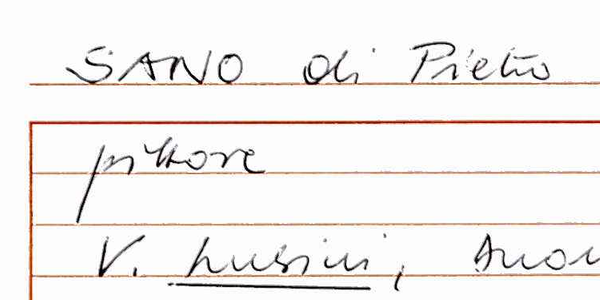 SANO di Pietro
pittore
V. Lusini,